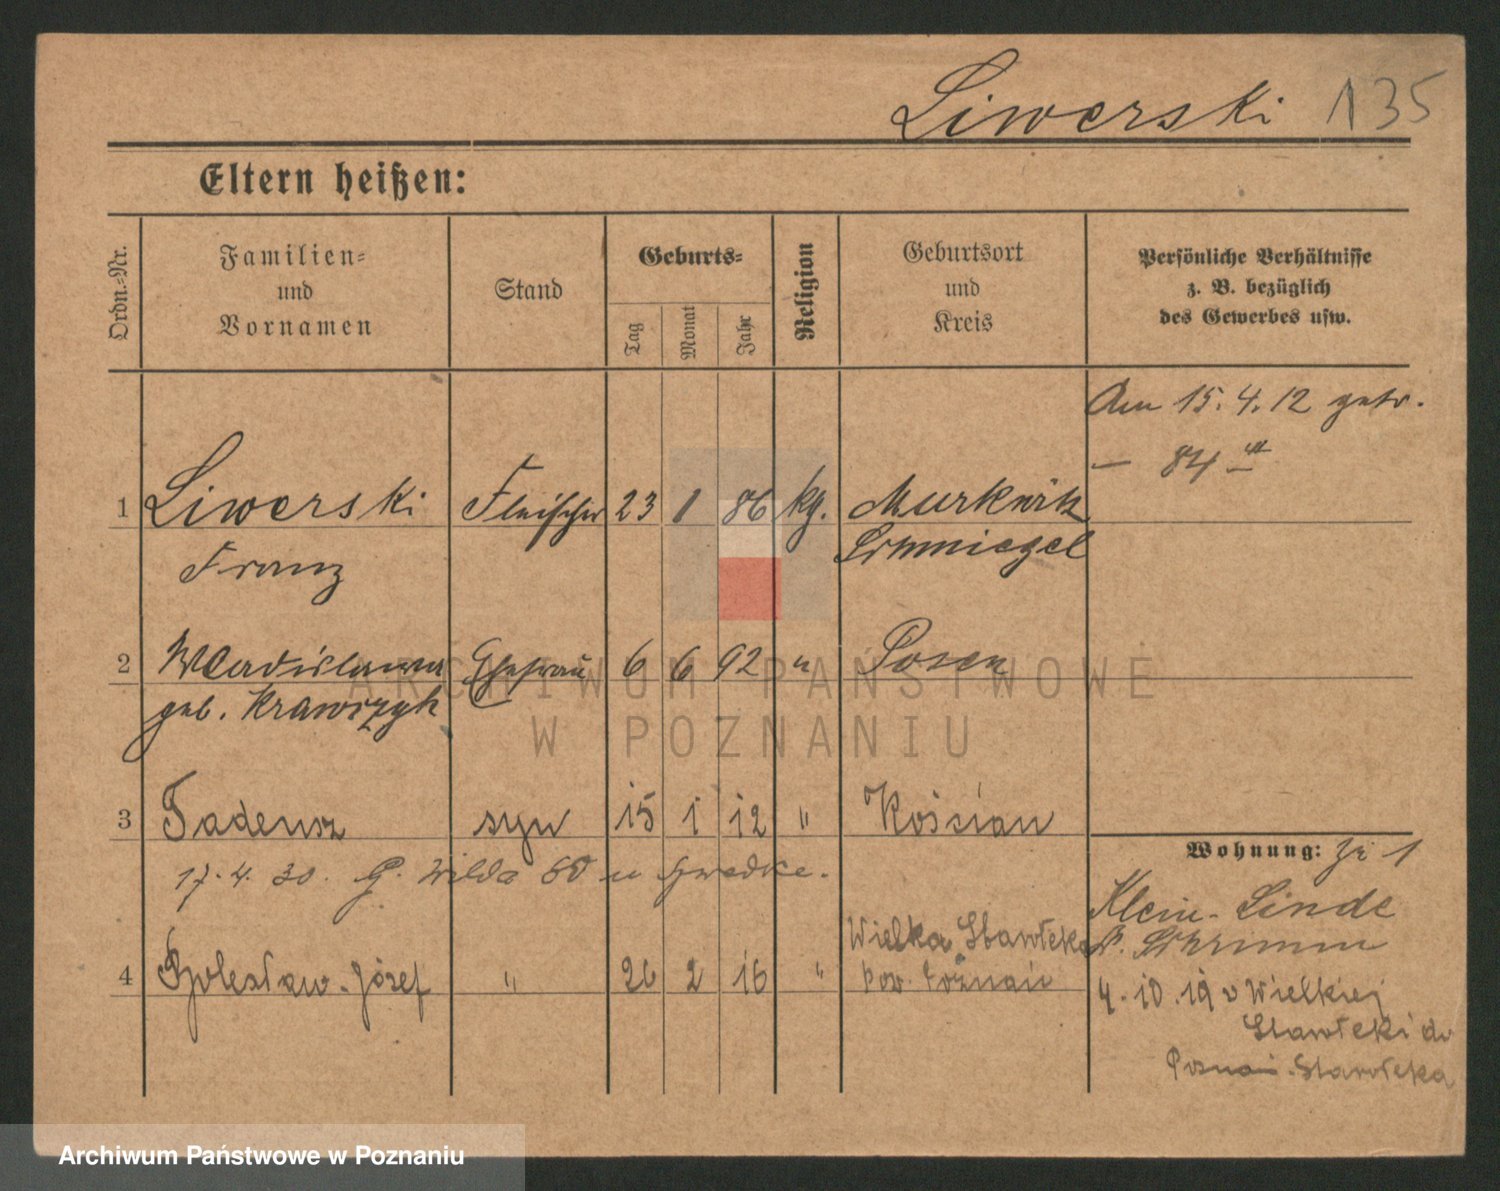 Liwerski 135
Eltern heißen:
Ordn.=Nr.
Familien=
und
Vornamen
Stand
Geburts=
Tag
Monat
Jahr
Religion
Geburtsort
und
Kreis
Persönliche Verhältnisse
z. B. bezüglich
des Gewerbes usw.
Am 15. 4. 12 getr.
— 84
1 Liwerski Fleischer 23 1 86 kg. Murkwitz
Franz Schmiegel
2 Wladislawa Ehefrau 6 6 92 " Posen
geb. Krawczyk
3 Tadeusz syn 15 1 12 " Kościan
17. 4. 30. G. Wilda 60
4 Bolesław-Józef " 26 2 16 " Wielka Starołęka
pow. Poznań
Wohnung: 1
Klein-Linde
Schrimm
4. 10. 19 v Wielkiej
Starołęki do
Poznań-Starołęka
ARCHIWUM PAŃSTWOWE
W POZNANIU
Archiwum Państwowe w Poznaniu